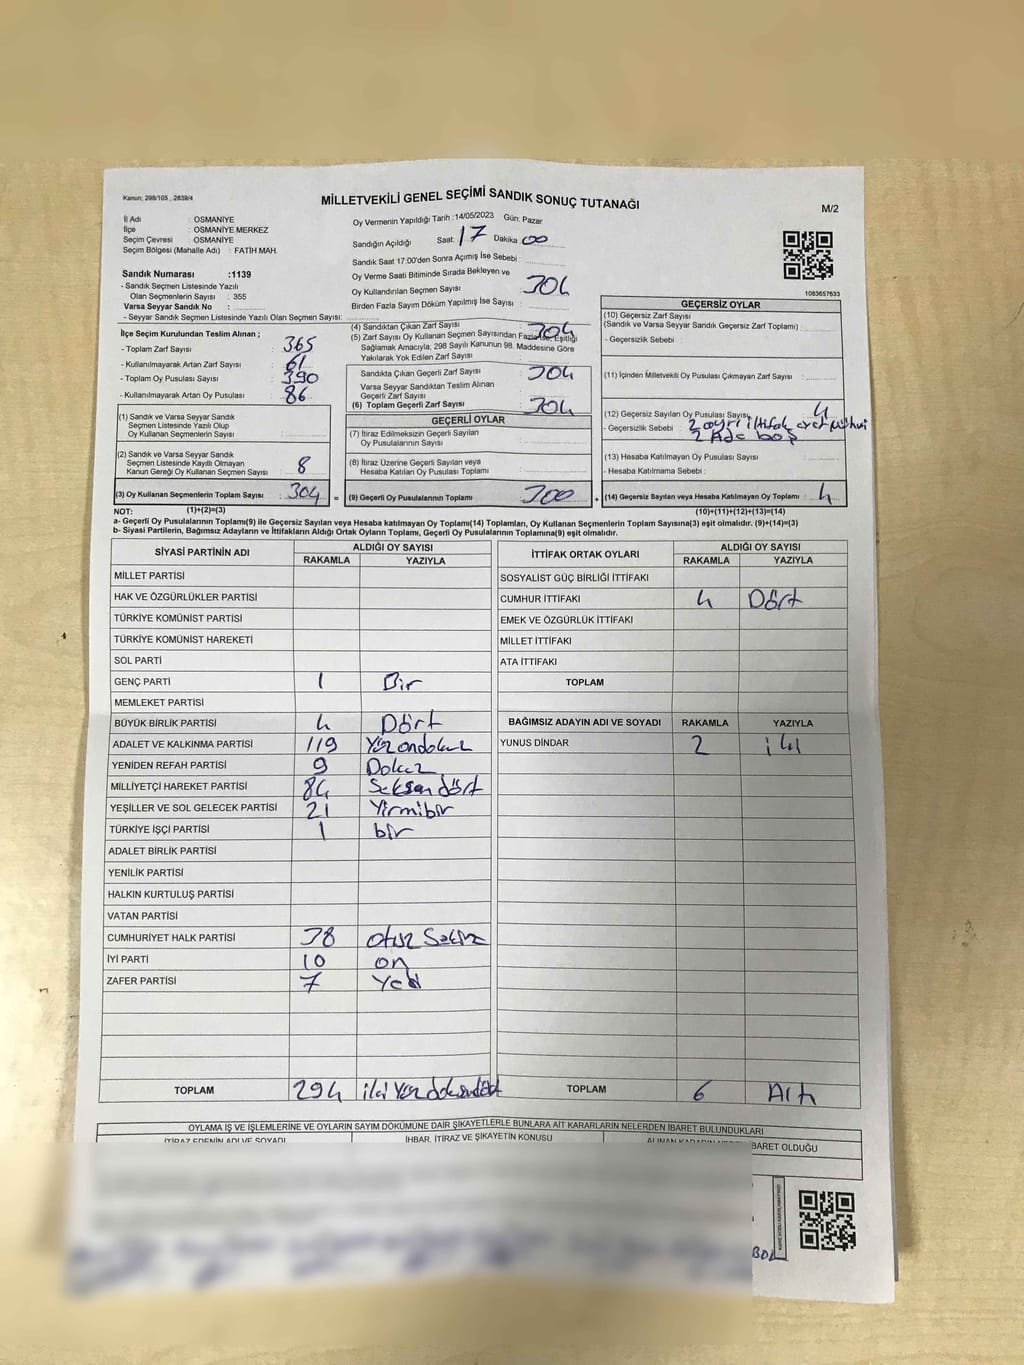 Kanun; 298/105 , 2839/4
MİLLETVEKİLİ GENEL SEÇİMİ SANDIK SONUÇ TUTANAĞI
M/2
İl Adı : OSMANİYE
İlçe : OSMANİYE MERKEZ
Seçim Çevresi : OSMANİYE
Seçim Bölgesi (Mahalle Adı) : FATİH MAH.
Sandık Numarası :1139
- Sandık Seçmen Listesinde Yazılı
Olan Seçmenlerin Sayısı : 355
Varsa Seyyar Sandık No :
- Seyyar Sandık Seçmen Listesinde Yazılı Olan Seçmen Sayısı:
Oy Vermenin Yapıldığı Tarih :14/05/2023 Gün: Pazar
Sandığın Açıldığı Saat: 17 Dakika 00
Sandık Saat 17:00'den Sonra Açılmış İse Sebebi :
Oy Verme Saati Bitiminde Sırada Bekleyen ve
Oy Kullandırılan Seçmen Sayısı 304
Birden Fazla Sayım Döküm Yapılmış İse Sayısı :
1083657633
İlçe Seçim Kurulundan Teslim Alınan ;
- Toplam Zarf Sayısı : 365
- Kullanılmayarak Artan Zarf Sayısı : 61
- Toplam Oy Pusulası Sayısı : 390
- Kullanılmayarak Artan Oy Pusulası : 86
(1) Sandık ve Varsa Seyyar Sandık
Seçmen Listesinde Yazılı Olup
Oy Kullanan Seçmenlerin Sayısı :
(2) Sandık ve Varsa Seyyar Sandık
Seçmen Listesinde Kayıtlı Olmayan
Kanun Gereği Oy Kullanan Seçmen Sayısı : 8
(3) Oy Kullanan Seçmenlerin Toplam Sayısı : 304 =
(4) Sandıktan Çıkan Zarf Sayısı : 304
(5) Zarf Sayısı Oy Kullanan Seçmen Sayısından Fazla ise, Eşitliği
Sağlamak Amacıyla, 298 Sayılı Kanunun 98. Maddesine Göre
Yakılarak Yok Edilen Zarf Sayısı :
Sandıkta Çıkan Geçerli Zarf Sayısı : 304
Varsa Seyyar Sandıktan Teslim Alınan
Geçerli Zarf Sayısı :
(6) Toplam Geçerli Zarf Sayısı : 304
GEÇERLİ OYLAR
(7) İtiraz Edilmeksizin Geçerli Sayılan
Oy Pusulalarının Sayısı :
(8) İtiraz Üzerine Geçerli Sayılan veya
Hesaba Katılan Oy Pusulası Toplamı :
(9) Geçerli Oy Pusulalarının Toplamı : 300 +
GEÇERSİZ OYLAR
(10) Geçersiz Zarf Sayısı
(Sandık ve Varsa Seyyar Sandık Geçersiz Zarf Toplamı) :
- Geçersizlik Sebebi :
(11) İçinden Milletvekili Oy Pusulası Çıkmayan Zarf Sayısı :
(12) Geçersiz Sayılan Oy Pusulası Sayısı 4
- Geçersizlik Sebebi : 2 ayrı ittifak
2 Ade boş
(13) Hesaba Katılmayan Oy Pusulası Sayısı :
- Hesaba Katılmama Sebebi :
(14) Geçersiz Sayılan veya Hesaba Katılmayan Oy Toplamı : 4
NOT: (1)+(2)=(3) (10)+(11)+(12)+(13)=(14)
a- Geçerli Oy Pusulalarının Toplamı(9) ile Geçersiz Sayılan veya Hesaba katılmayan Oy Toplamı(14) Toplamları, Oy Kullanan Seçmenlerin Toplam Sayısına(3) eşit olmalıdır. (9)+(14)=(3)
b- Siyasi Partilerin, Bağımsız Adayların ve İttifakların Aldığı Ortak Oyların Toplamı, Geçerli Oy Pusulalarının Toplamına(9) eşit olmalıdır.
SİYASİ PARTİNİN ADI ALDIĞI OY SAYISI
RAKAMLA YAZIYLA
MİLLET PARTİSİ
HAK VE ÖZGÜRLÜKLER PARTİSİ
TÜRKİYE KOMÜNİST PARTİSİ
TÜRKİYE KOMÜNİST HAREKETİ
SOL PARTİ
GENÇ PARTİ 1 Bir
MEMLEKET PARTİSİ
BÜYÜK BİRLİK PARTİSİ 4 Dört
ADALET VE KALKINMA PARTİSİ 119 Yüz ondokuz
YENİDEN REFAH PARTİSİ 9 Dokuz
MİLLİYETÇİ HAREKET PARTİSİ 84 Seksen dört
YEŞİLLER VE SOL GELECEK PARTİSİ 21 Yirmibir
TÜRKİYE İŞÇİ PARTİSİ 1 bir
ADALET BİRLİK PARTİSİ
YENİLİK PARTİSİ
HALKIN KURTULUŞ PARTİSİ
VATAN PARTİSİ
CUMHURİYET HALK PARTİSİ 38 otuz Sekiz
İYİ PARTİ 10 on
ZAFER PARTİSİ 7 Yedi
TOPLAM 294 iki Yüz doksandört
İTTİFAK ORTAK OYLARI ALDIĞI OY SAYISI
RAKAMLA YAZIYLA
SOSYALİST GÜÇ BİRLİĞİ İTTİFAKI
CUMHUR İTTİFAKI 4 Dört
EMEK VE ÖZGÜRLÜK İTTİFAKI
MİLLET İTTİFAKI
ATA İTTİFAKI
TOPLAM
BAĞIMSIZ ADAYIN ADI VE SOYADI RAKAMLA YAZIYLA
YUNUS DİNDAR 2 iki
TOPLAM 6 Altı
OYLAMA İŞ VE İŞLEMLERİNE VE OYLARIN SAYIM DÖKÜMÜNE DAİR ŞİKAYETLERLE BUNLARA AİT KARARLARIN NELERDEN İBARET BULUNDUKLARI
İTİRAZ EDENİN ADI VE SOYADI İHBAR, İTİRAZ VE ŞİKAYETİN KONUSU ALINAN KARARIN NEDEN İBARET OLDUĞU